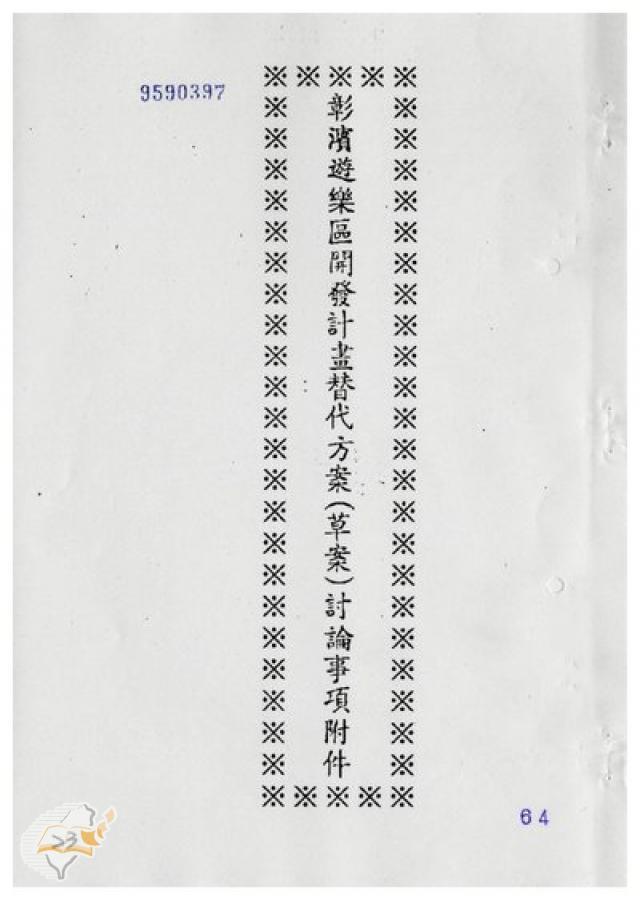 9590397
※※※※※
彰濱遊樂區開發計畫替代方案(草案)討論事項附件
※※※※※
64
23